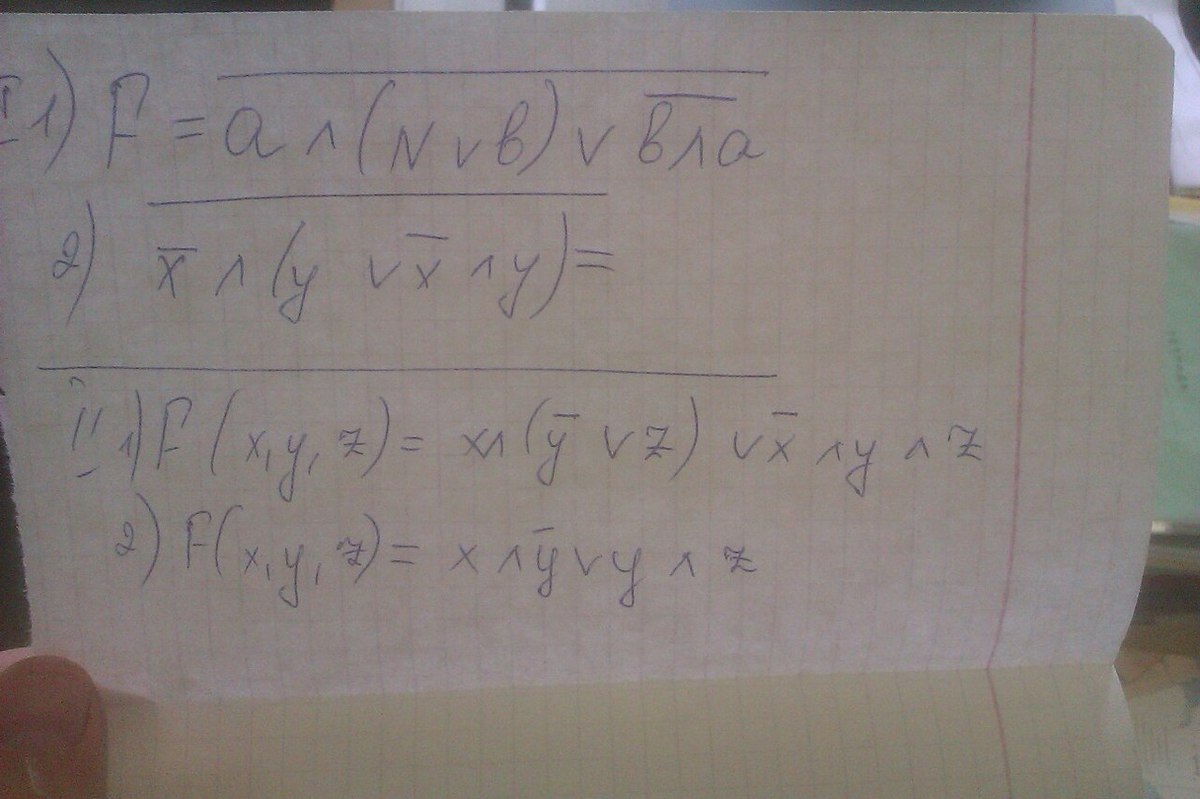 I 1) F = \overline{a ∧ (N ∨ в) ∨ \overline{в ∧ a}}
2) \overline{\overline{x} ∧ (y ∨ \overline{x} ∧ y)} =
II 1) F (x, y, z) = x ∧ (\overline{y} ∨ z) ∨ \overline{x} ∧ y ∧ z
2) F(x, y, z) = x ∧ \overline{y} ∨ y ∧ z